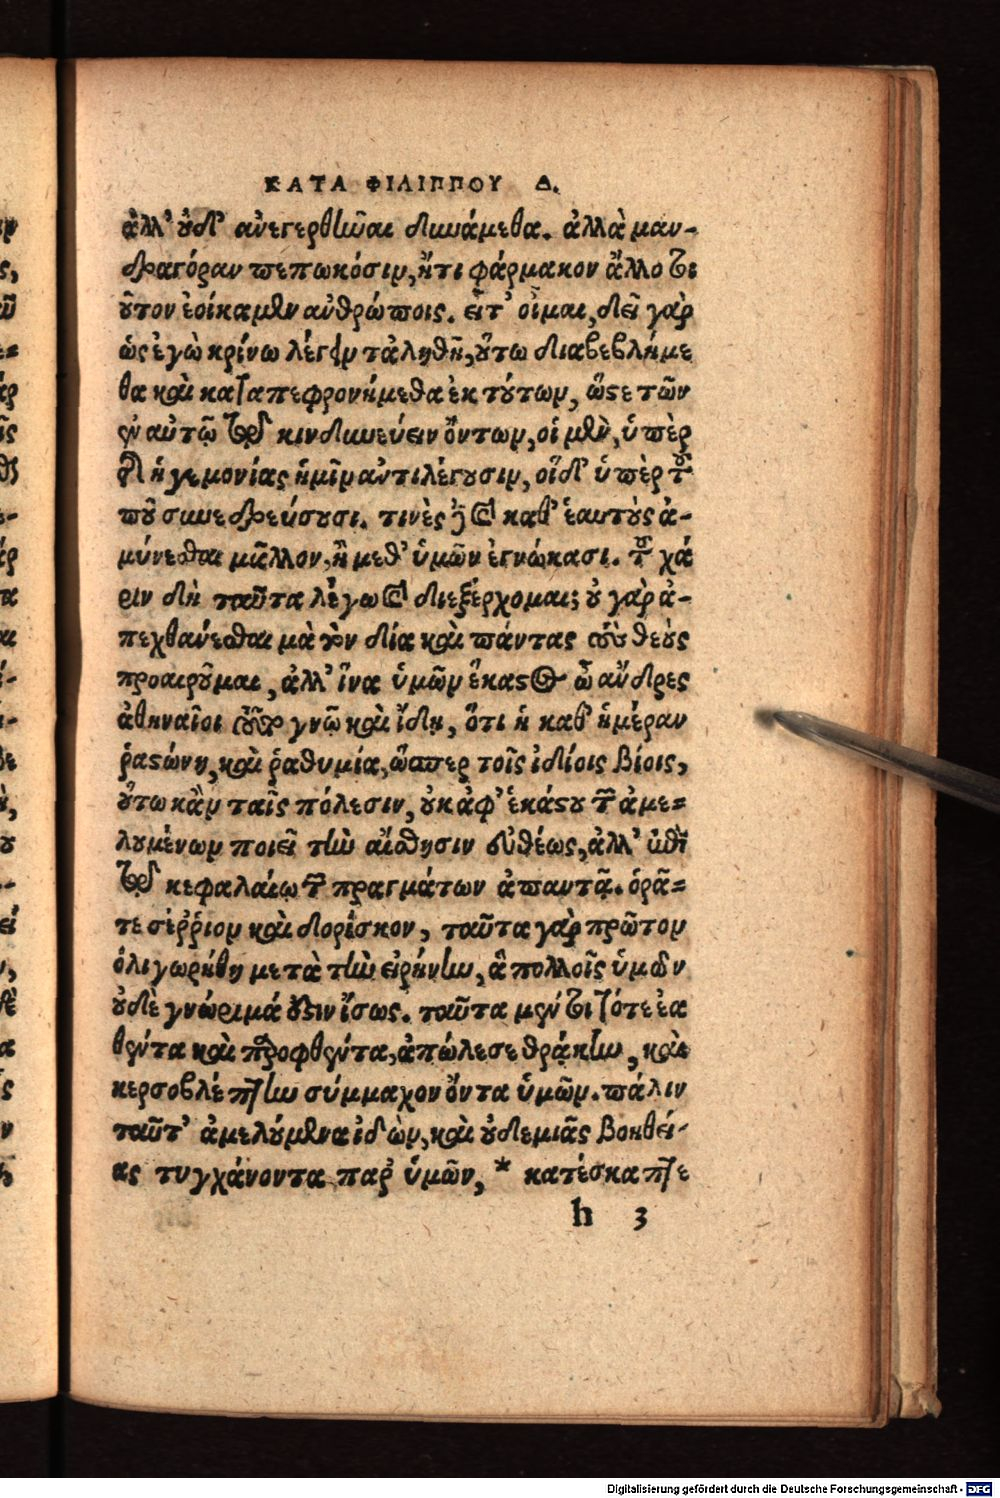 ΚΑΤΑ ΦΙΛΙΠΠΟΥ Δ.
ἀλλ' οὐδ' ἀνεγερθῆναι δυνάμεθα. ἀλλὰ μαν-
δραγόραν πεπωκόσιν, ἤ τι φάρμακον ἄλλο τοι
οῦτον ἐοίκαμεν ἀνθρώποις. εἶτ' οἶμαι, δεῖ γὰρ
ὡς ἐγὼ κρίνω λέγειν τἀληθῆ, οὕτω διαβεβλήμε
θα καὶ καταπεφρονήμεθα ἐκ τούτων, ὥστε τῶν
ἐν αὐτῷ τῷ κινδυνεύειν ὄντων, οἱ μὲν, ὑπὲρ
τῆς ἡγεμονίας ἡμῖν ἀντιλέγουσιν, οἱ δ' ὑπὲρ τοῦ
ποῦ συνεδρεύσουσι. τινὲς δὲ καθ' ἑαυτοὺς ἀ-
μύνεσθαι μᾶλλον, ἢ μεθ' ὑμῶν ἐγνώκασι. τοῦ χά
ριν δὴ ταῦτα λέγω καὶ διεξέρχομαι; οὐ γὰρ ἀ-
πεχθάνεσθαι μὰ τὸν δία καὶ πάντας τοὺς θεοὺς
προαιροῦμαι, ἀλλ' ἵνα ὑμῶν ἕκαστος ὦ ἄνδρες
ἀθηναῖοι τοῦτο γνῷ καὶ ἴδῃ, ὅτι ἡ καθ' ἡμέραν
ῥαστώνη, καὶ ῥαθυμία, ὥσπερ τοῖς ἰδίοις βίοις,
οὕτω κἀν ταῖς πόλεσιν, οὐκ ἀφ' ἑκάστου τῶν ἀμε=
λουμένων ποιεῖ τὴν αἴσθησιν εὐθέως, ἀλλ' ἐπὶ
τῷ κεφαλαίῳ τῶν πραγμάτων ἀπαντᾷ. ὁρᾶ=
τε σέρριον καὶ δορίσκον, ταῦτα γὰρ πρῶτον
ὀλιγωρήθη μετὰ τὴν εἰρήνην, ἃ πολλοῖς ὑμῶν
οὐδὲ γνώριμά ἐστιν ἴσως. ταῦτα μέντοι τότε ἐα
θέντα καὶ παροφθέντα, ἀπώλεσε θράκην, καὶ
κερσοβλέπτην σύμμαχον ὄντα ὑμῶν. πάλιν
ταῦτ' ἀμελούμενα ἰδὼν, καὶ οὐδεμιᾶς βοηθεί-
ας τυγχάνοντα παρ' ὑμῶν, * κατέσκαπτε
h 3
Digitalisierung gefördert durch die Deutsche Forschungsgemeinschaft - DFG